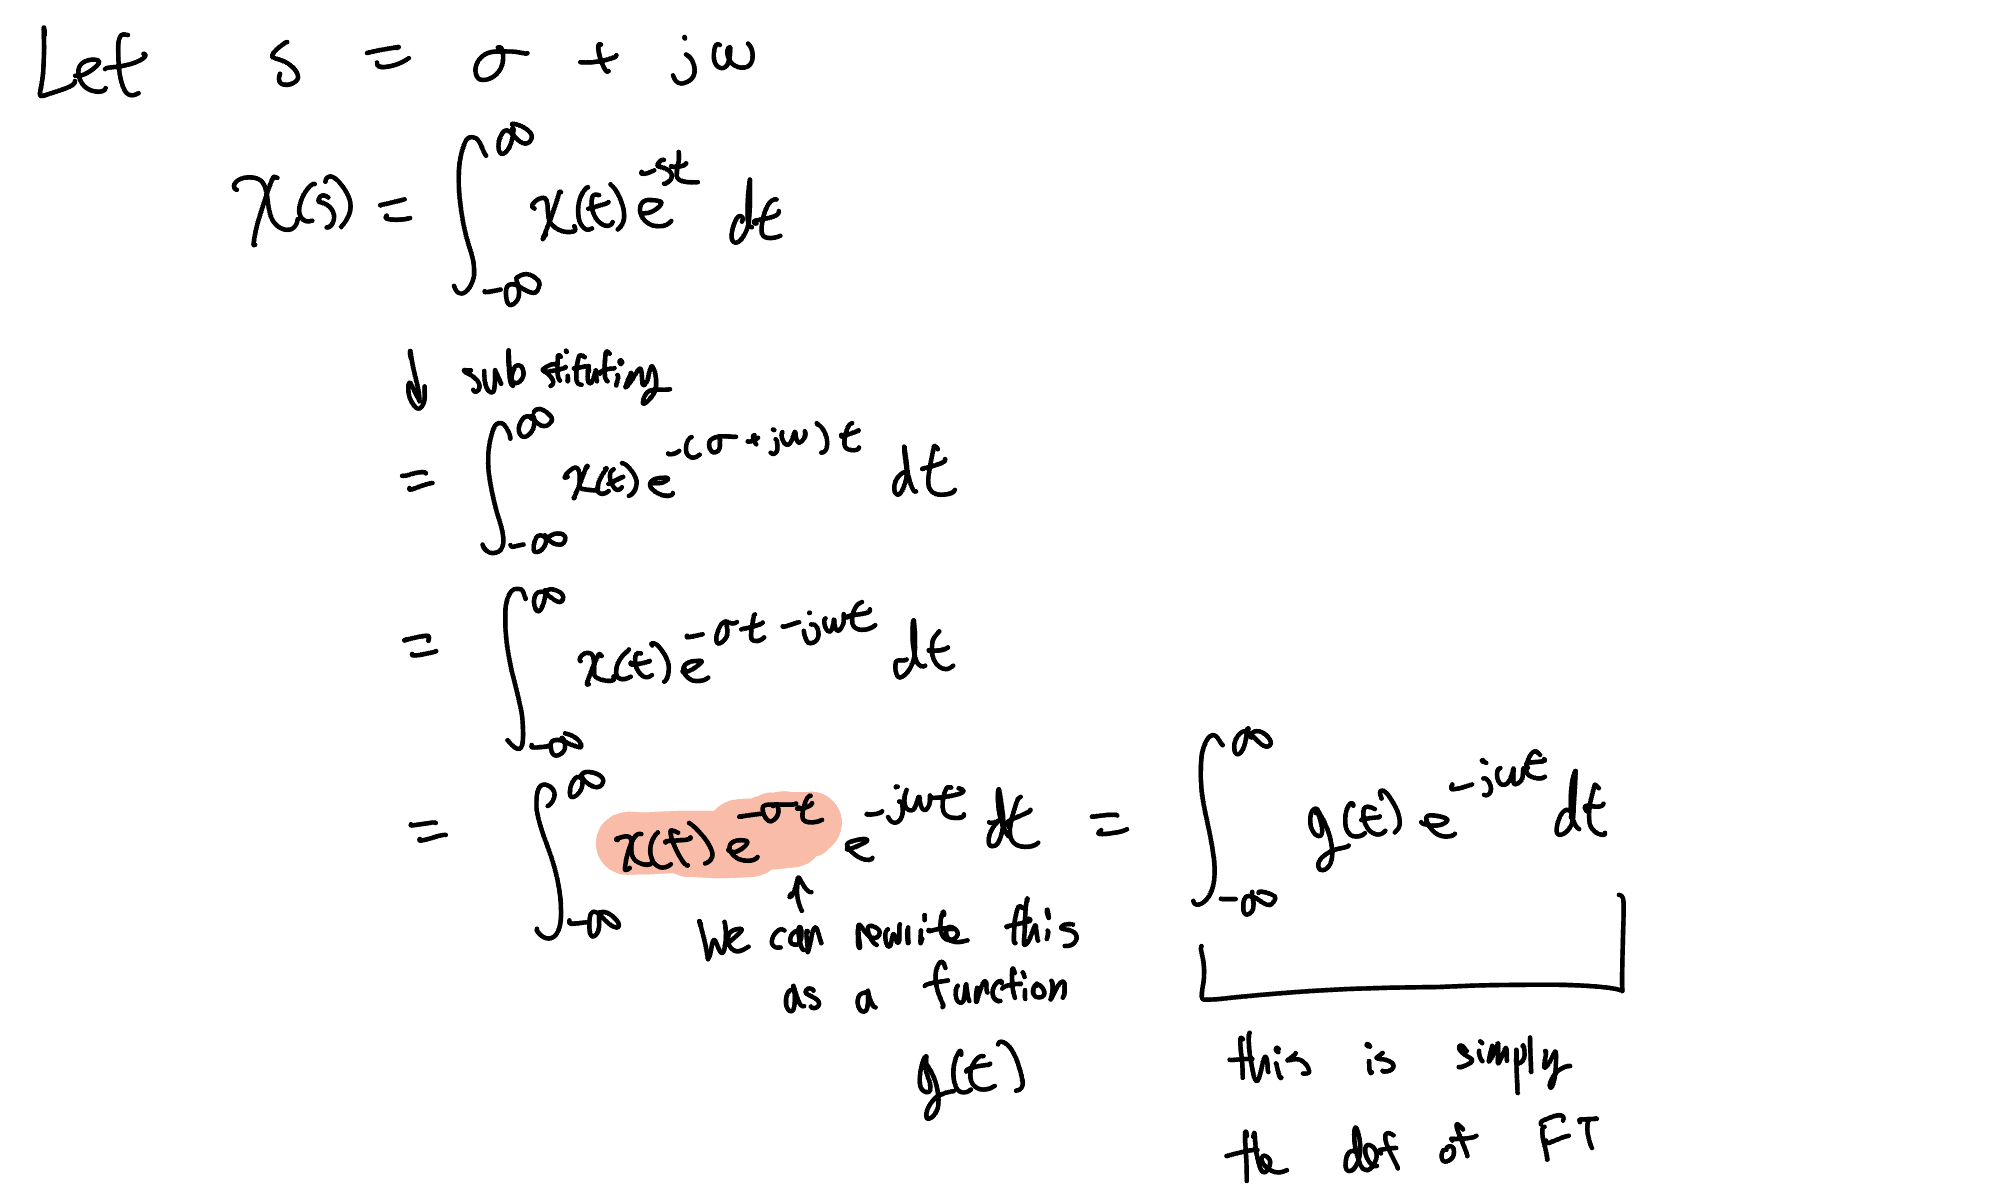 Let s = σ + jω
X(s) = ∫_{-∞}^{∞} x(t) e^{-st} dt
↓ substituting
= ∫_{-∞}^{∞} x(t) e^{-(σ+jω)t} dt
= ∫_{-∞}^{∞} x(t) e^{-σt -jωt} dt
= ∫_{-∞}^{∞} x(t) e^{-σt} e^{-jωt} dt = ∫_{-∞}^{∞} g(t) e^{-jωt} dt
↑
We can rewrite this
as a function
g(t)
this is simply
the def of FT